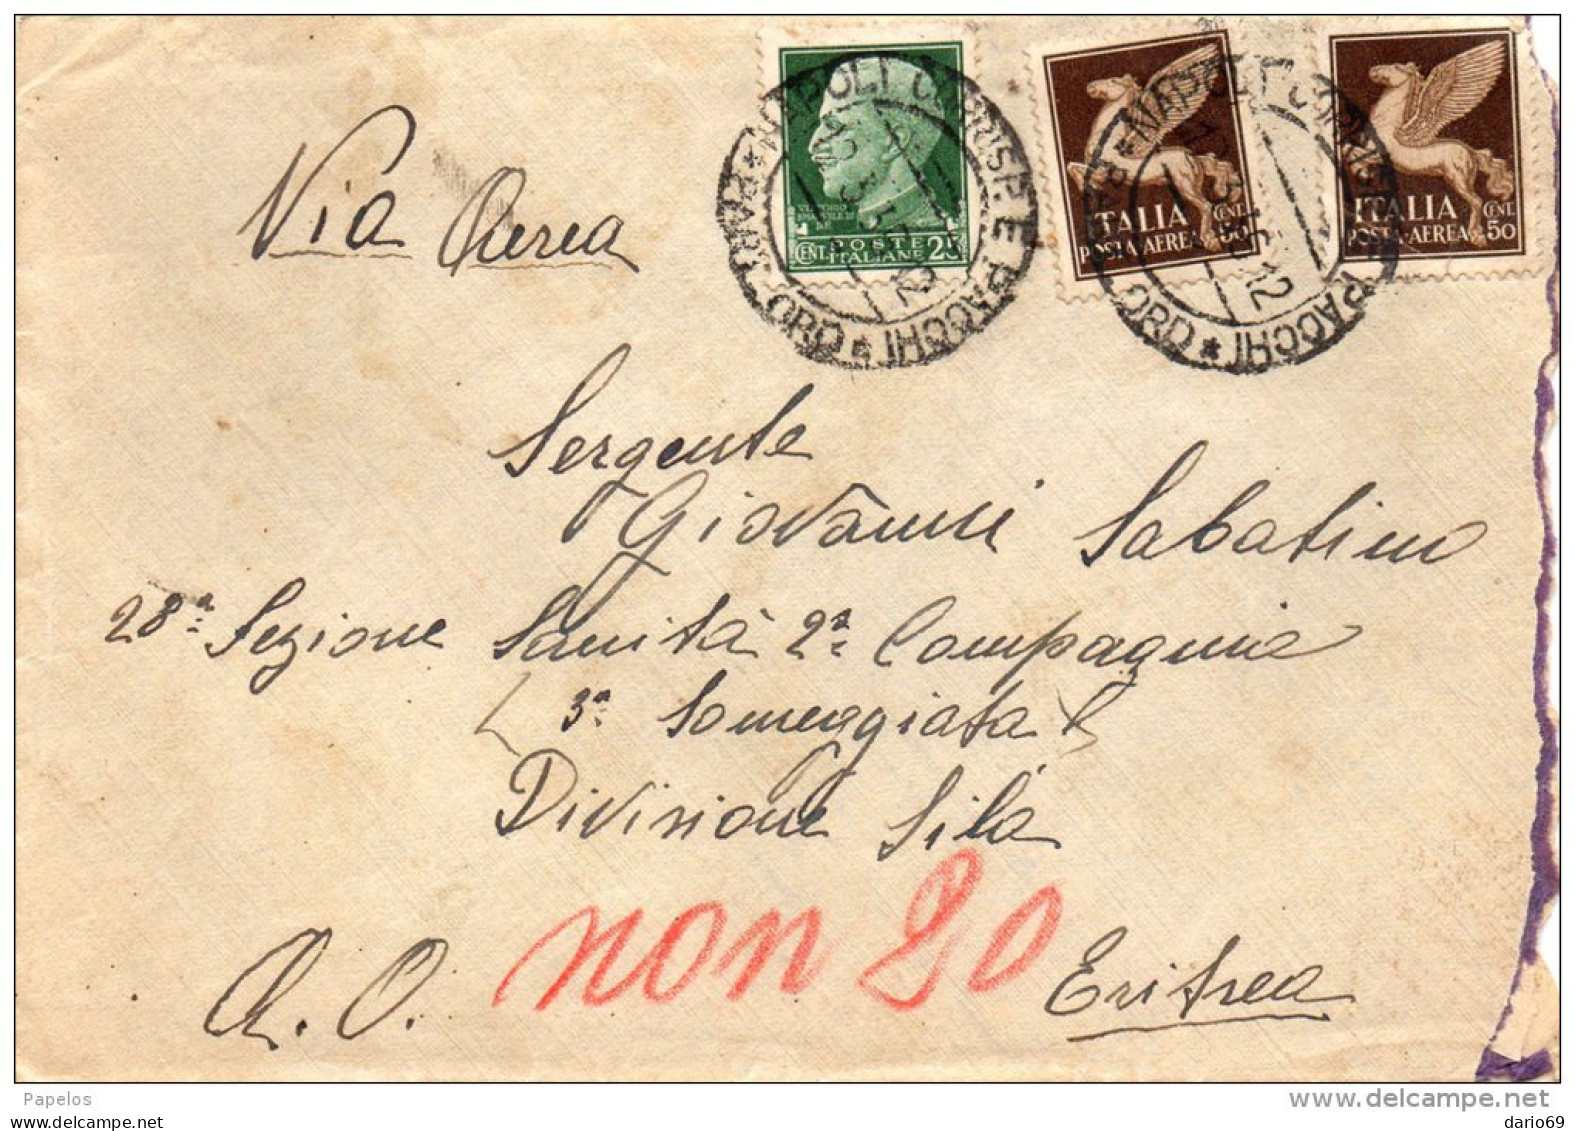 Via Aerea
VITTORIO
EMANUELE III
CENT. POSTE ITALIANE 25
ITALIA CENT.
POSTA AEREA 50
ITALIA CENT.
POSTA AEREA 50
NAPOLI CORRISP. E PACCHI ORD
NAPOLI CORRISP. E PACCHI ORD
Sergente
Giovanni Sabatino
28ª Sezione Sanità 2ª Compagnia
3ª Someggiata
Divisione Sila
non
A. O. Eritrea
Papelos
www.delcampe.net
dario69